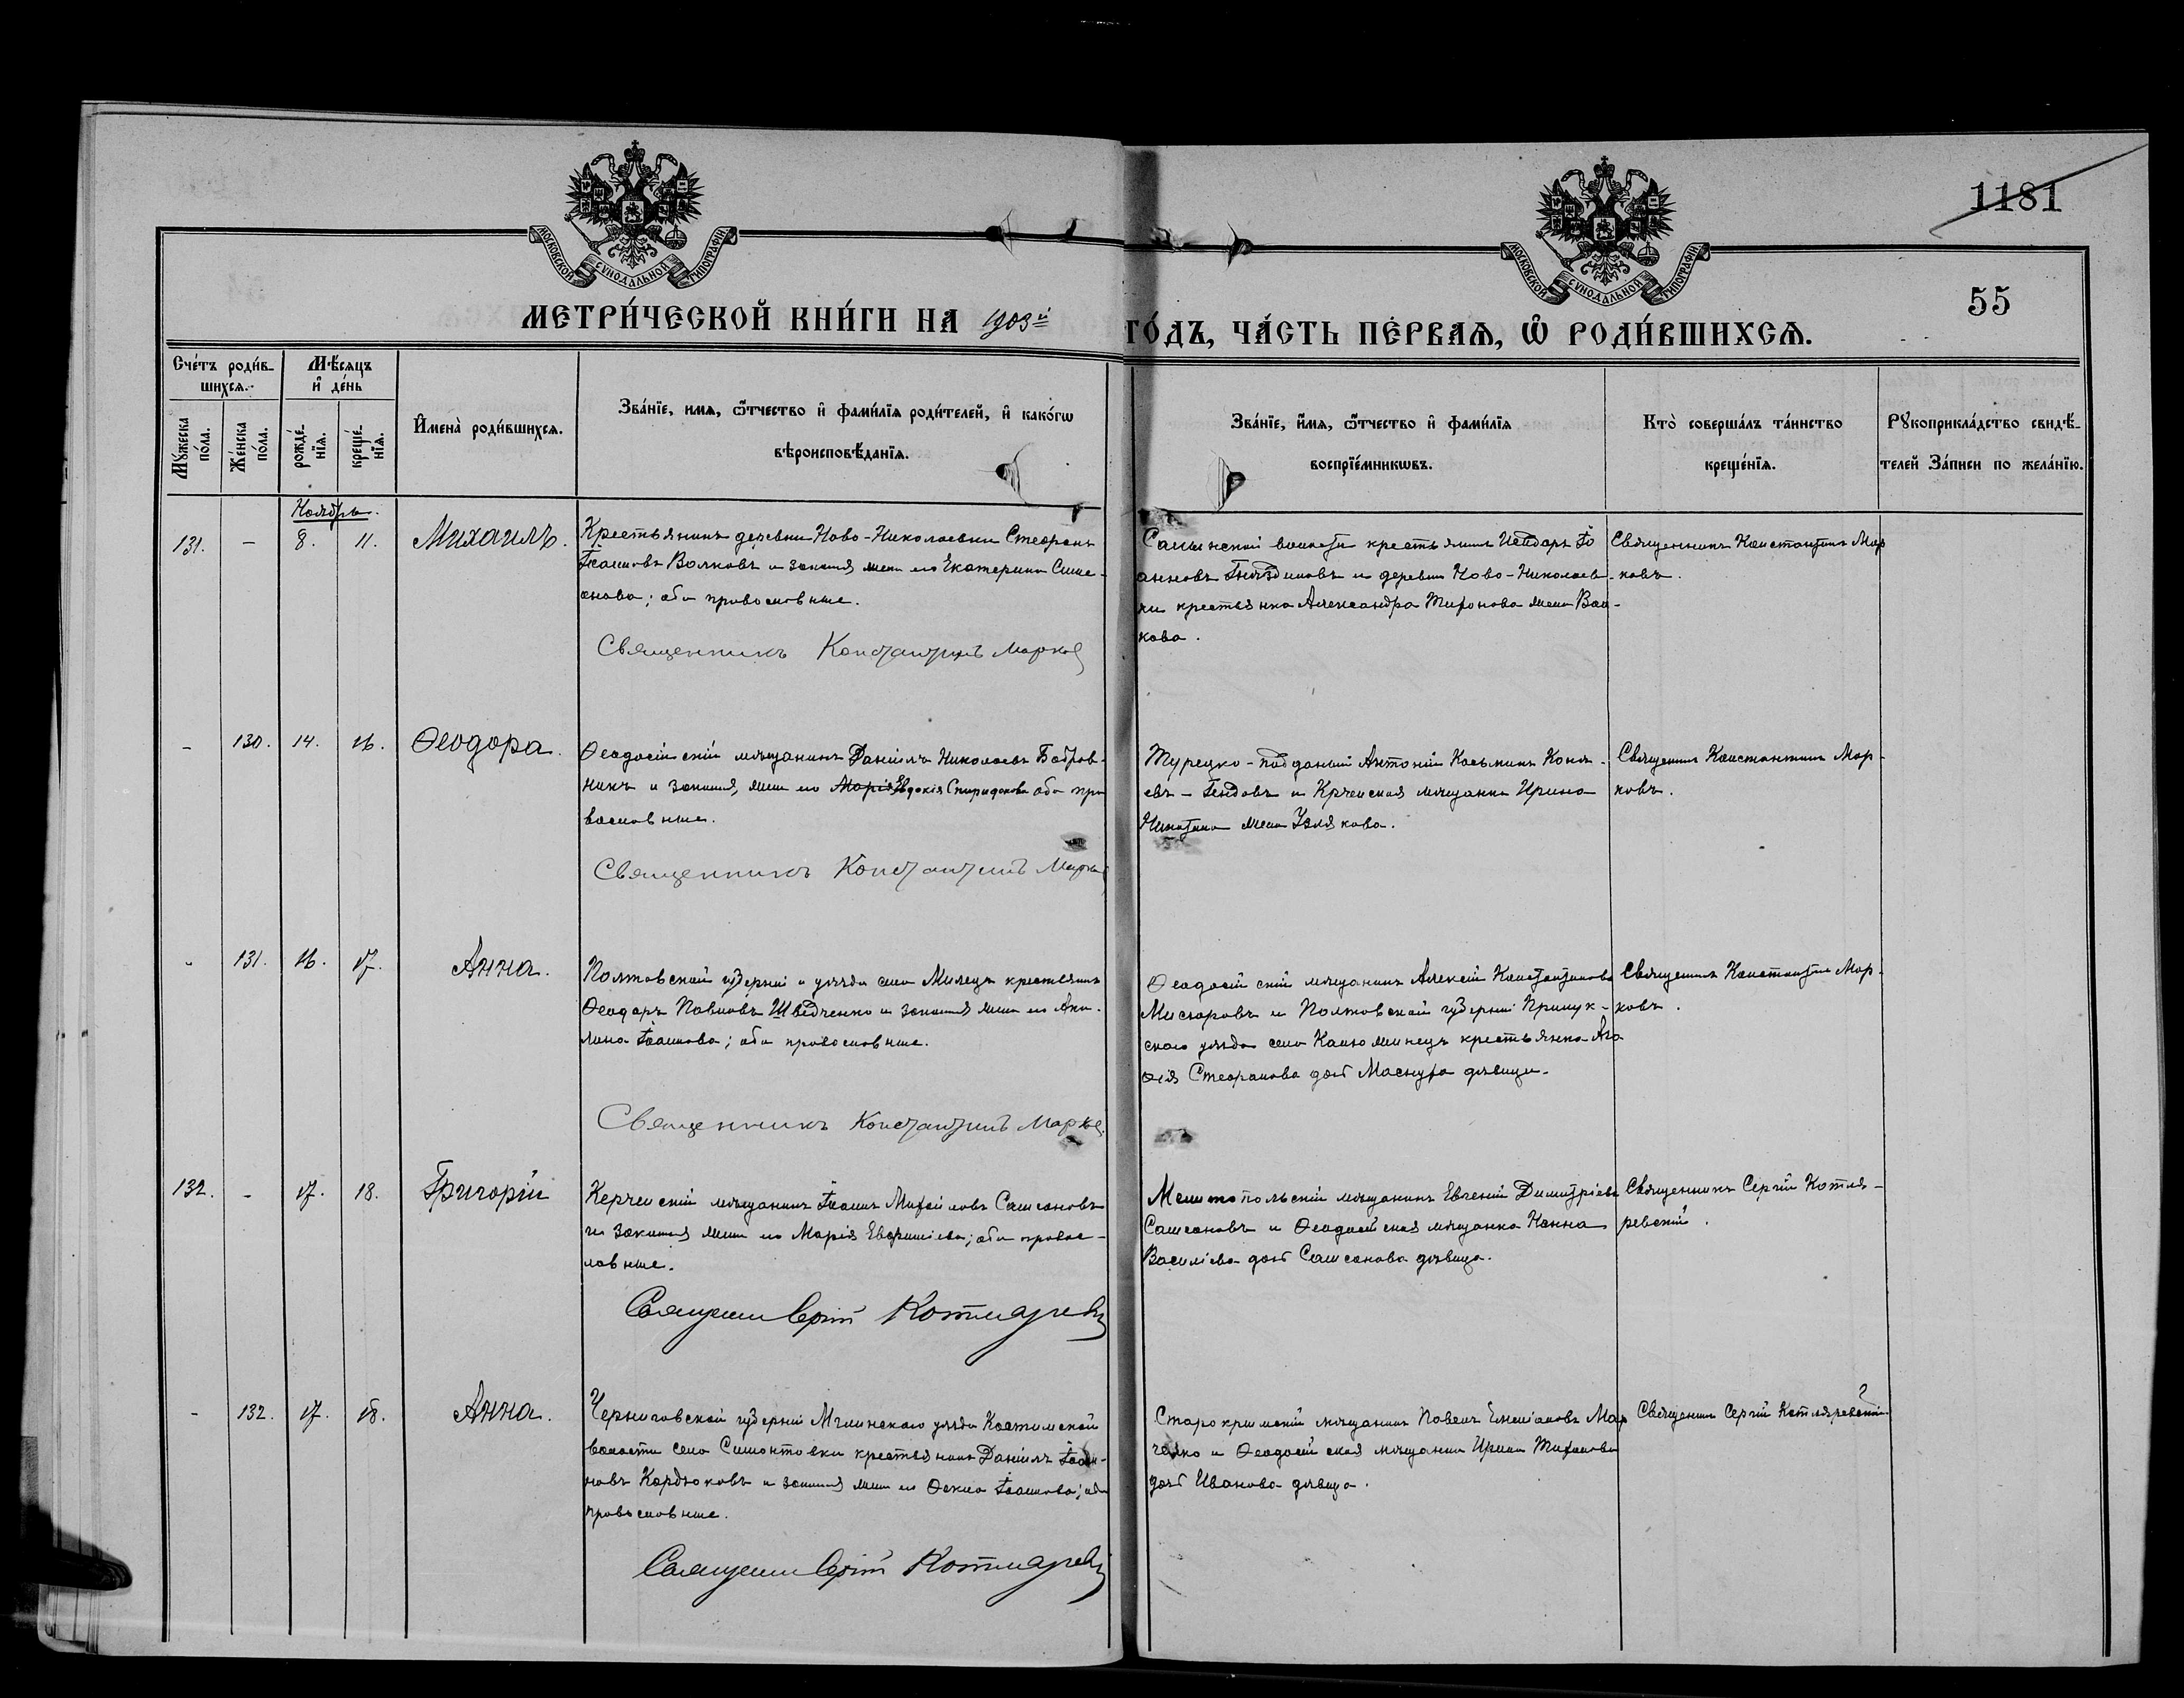 1181
55
МОСКОВСКОЙ СѴНОДАЛЬНОЙ ТИПОГРАФІИ
МОСКОВСКОЙ СѴНОДАЛЬНОЙ ТИПОГРАФІИ
МЕТРИ́ЧЕСКОЙ КНИ́ГИ НА 1903й ГО́ДЪ, ЧА́СТЬ ПЕ́РВАѦ, Ѡ҆ РОДИ́ВШИХСѦ.
Сче́тъ роди́в-
шихсѧ.
Мѣ́сѧцъ
и҆ де́нь
Мꙋ́жеска по́ла.
Же́нска по́ла.
рожде́нїѧ.
креще́нїѧ.
И҆мена̀ роди́вшихсѧ.
Зва́нїе, имѧ, ѿтчество и҆ фами́лїѧ роди́телей, и҆ како́гѡ
вѣроисповѣ́данїѧ.
Зва́нїе, и҆́мѧ, ѿтчество и҆ фами́лїѧ
воспрїе́мникѡвъ.
Кто̀ соверша́лъ та́инство
креще́нїѧ.
Рꙋкоприкла́дство свидѣ́-
телей за́писи по жела́нїю.
Ноябрь.
131. - 8. 11. Михаилъ.
Крестьянинъ деревни Ново-Николаевки Стефанъ
Іоанновъ Волковъ и законная жена его Екатерина Симе-
онова; оба православные.
Священникъ Константинъ Марковъ
крестьянинъ Исидоръ Іо
анновъ Гнѣздиловъ и деревни Ново-Николаев-
ки крестьянка Александра Тихонова жена Вол-
кова.
Священникъ Константинъ Мар
ковъ.
- 130. 14. 16. Ѳеодора.
Ѳеодосійскій мѣщанинъ Даніилъ Николаевъ Бобров-
никъ и законная жена его Марія Евдокія Спиридонова оба пра
вославные.
Священникъ Константинъ Марковъ
Турецко-подданный Антоній Косьминъ
и Керченская мѣщанка Ирина
Никитина жена
Священникъ Константинъ Мар-
ковъ.
- 131. 16. 17. Анна.
Полтавской губерніи и уѣзда села Милецъ крестьянинъ
Ѳеодоръ Павловъ Шведченко и законная жена его Аки-
лина Іоаннова; оба православные.
Священникъ Константинъ Марковъ
Ѳеодосійскій мѣщанинъ Алексій Константиновъ
и Полтавской губерніи Прилук-
скаго уѣзда села крестьянка Ага
ѳія Стефанова дочь дѣвица.
Священникъ Константинъ Мар-
ковъ.
132. - 17. 18. Григорій
Керченскій мѣщанинъ Іоаннъ Михайловъ Самсоновъ
и законная жена его Марія Евфиміева; оба правос-
лавные.
Священникъ Сергій Котляревскій
Мелитопольскій мѣщанинъ Евгеній Димитріевъ
Самсоновъ и Ѳеодосійская мѣщанка Нонна
Василіева дочь Самсонова дѣвица.
Священникъ Сергій Котля-
ревскій.
- 132. 17. 18. Анна.
Черниговской губерніи Мглинскаго уѣзда Костинской
волости села Симонтовки крестьянинъ Даніилъ Іоан-
новъ Кардюковъ и законная жена его Ѳекла Іоаннова; оба
православные.
Священникъ Сергій Котляревскій
Старокрымскій мѣщанинъ Павелъ Емеліановъ Мар
ченко и Ѳеодосійская мѣщанка Ирина Тихонова
дочь Иванова дѣвица.
Священникъ Сергій Котляревскій